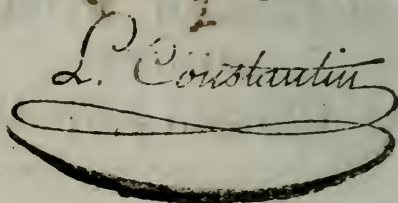 L. Constantin